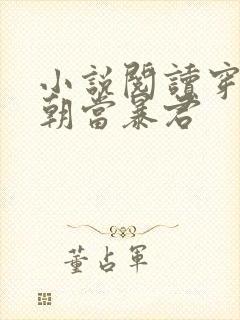 小說閱讀穿
朝當暴君
董占軍